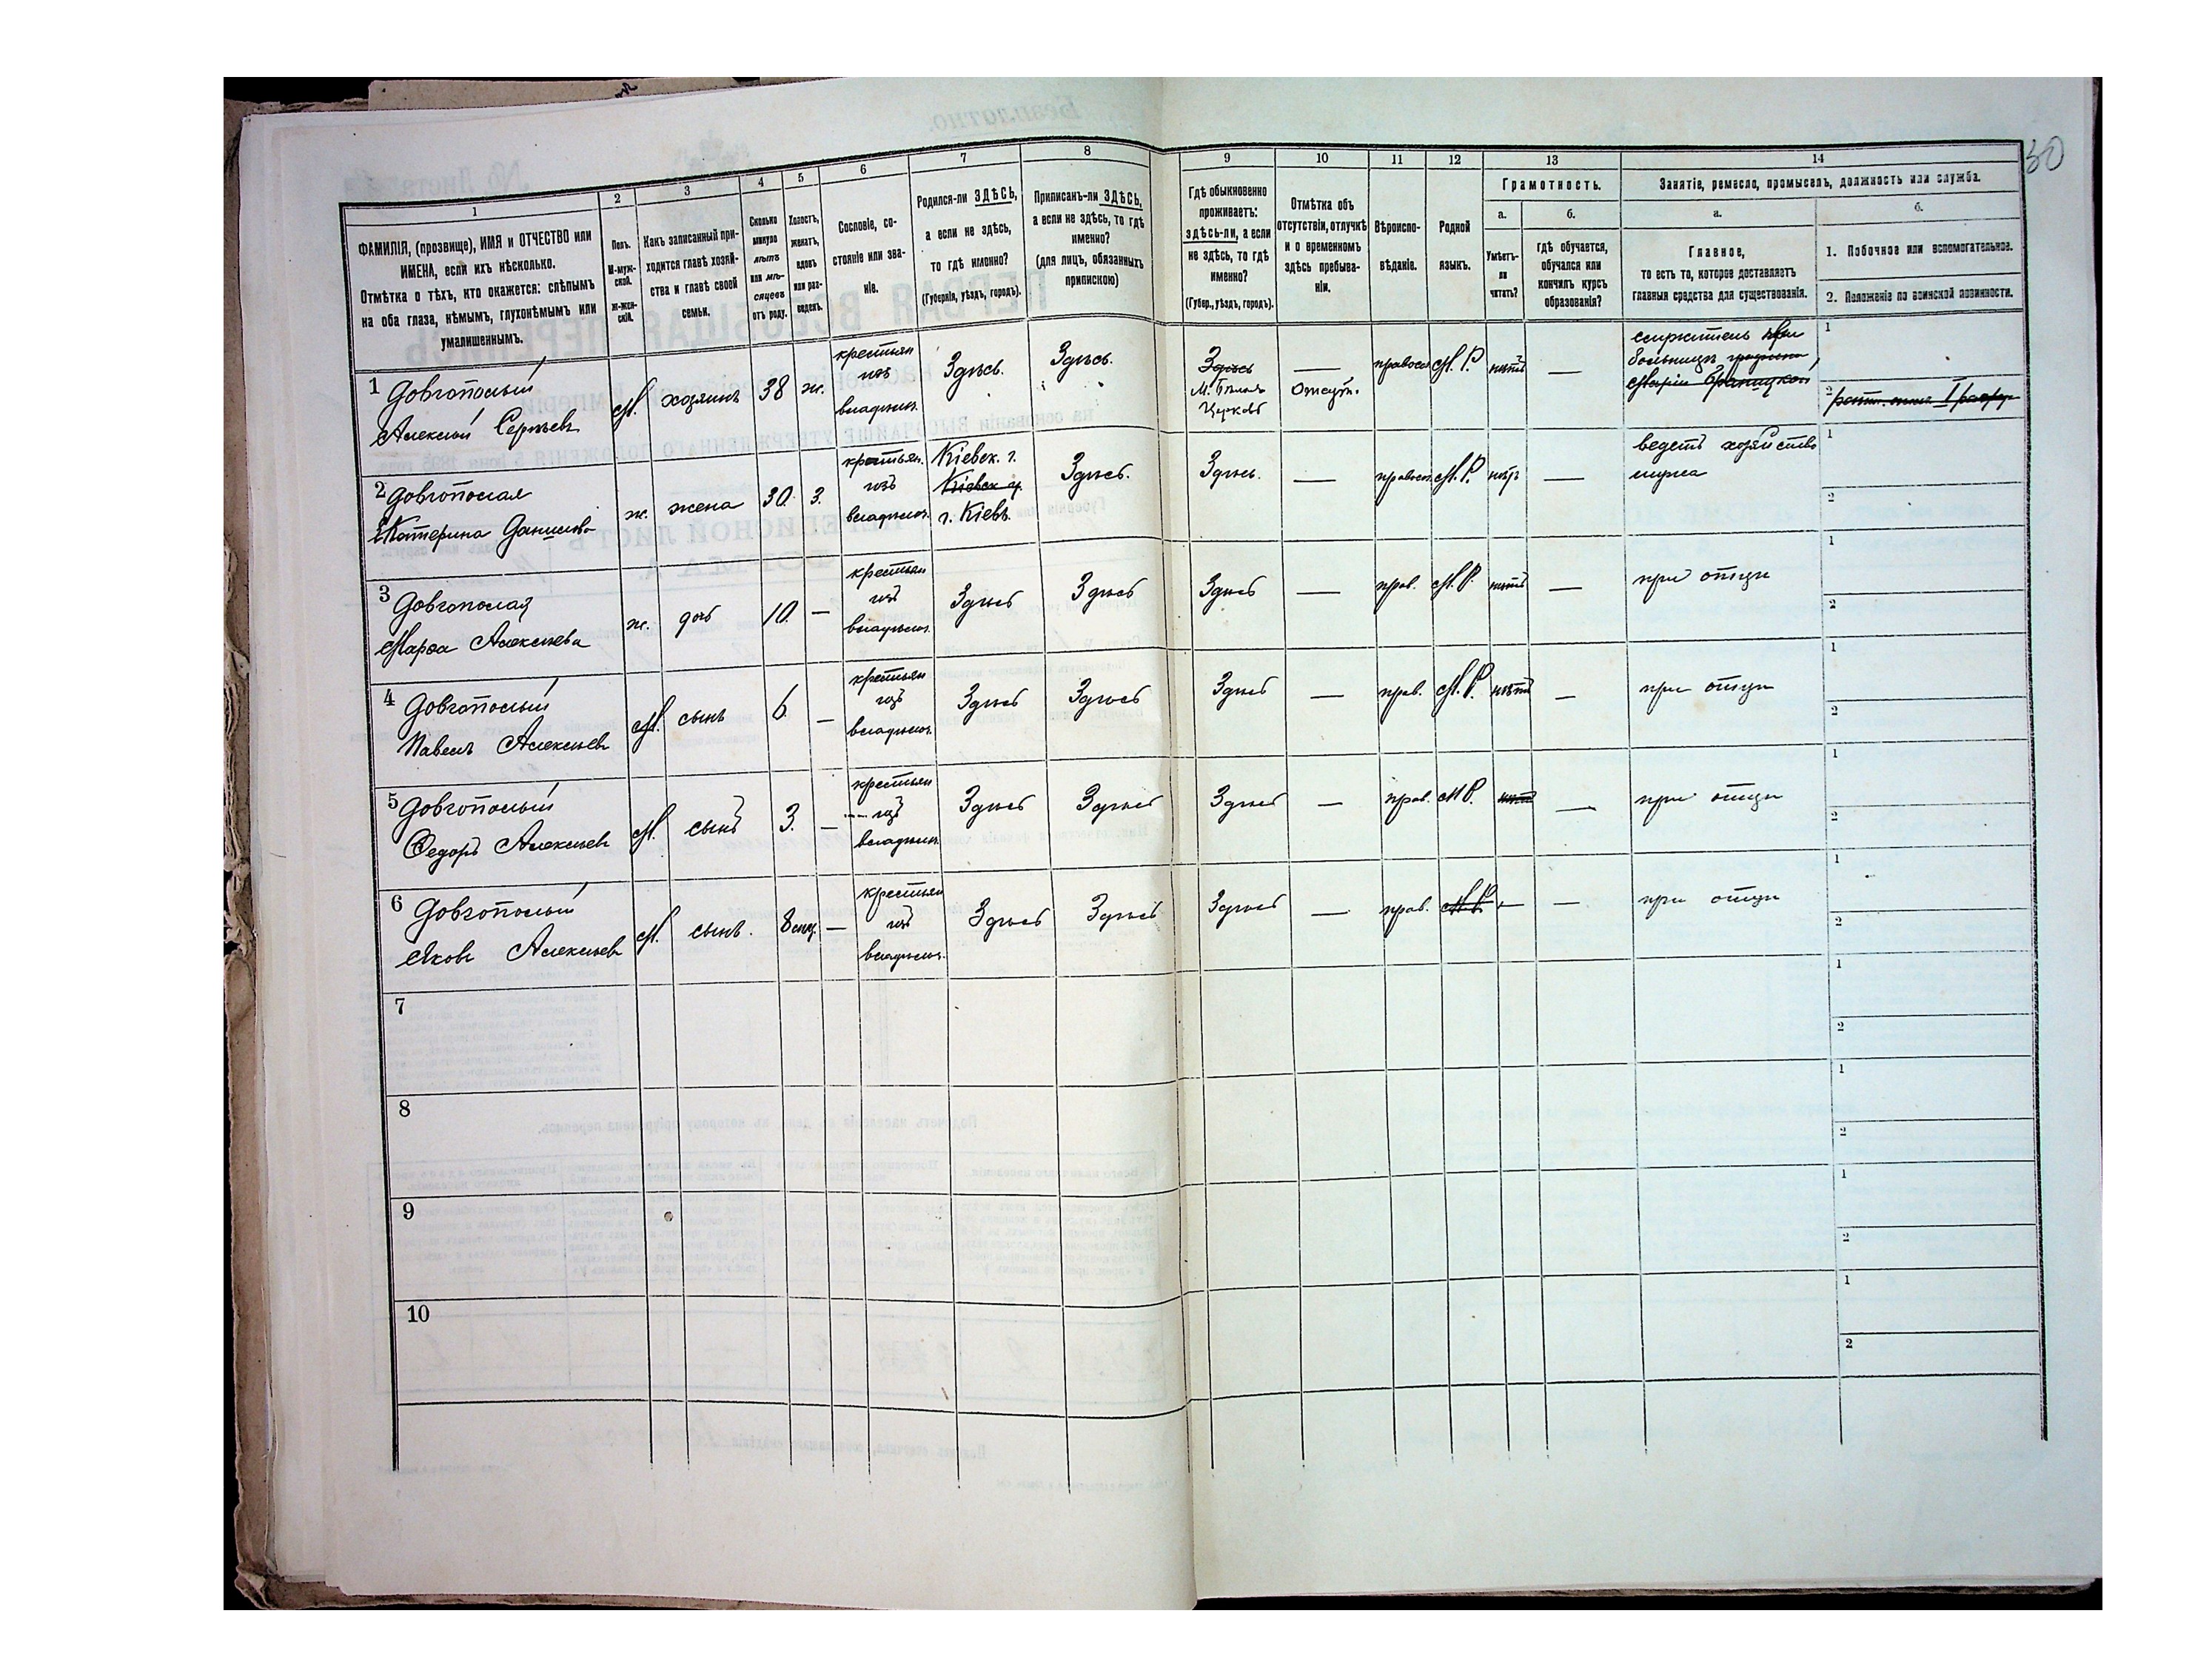 50
1 2 3 4 5 6 7 8 9 10 11 12 13 14
ФАМИЛІЯ, (прозвище), ИМЯ и ОТЧЕСТВО или
ИМЕНА, если ихъ нѣсколько.
Отмѣтка о тѣхъ, кто окажется: слѣпымъ
на оба глаза, нѣмымъ, глухонѣмымъ или
умалишеннымъ.
Полъ.
М-муж-
ской.
Ж-жен-
скій.
Какъ записанный при-
ходится главѣ хозяй-
ства и главѣ своей
семьи.
Сколько
минуло
лѣтъ
или мѣ-
сяцевъ
отъ роду.
Холостъ,
женатъ,
вдовъ
или раз-
веденъ.
Сословіе, со-
стояніе или зва-
ніе.
Родился-ли ЗДѢСЬ,
а если не здѣсь,
то гдѣ именно?
(Губернія, уѣздъ, городъ).
Приписанъ-ли ЗДѢСЬ,
а если не здѣсь, то гдѣ
именно?
(для лицъ, обязанныхъ
припискою)
Гдѣ обыкновенно
проживаетъ:
здѣсь-ли, а если
не здѣсь, то гдѣ
именно?
(Губер., уѣздъ, городъ).
Отмѣтка объ
отсутствіи, отлучкѣ
и о временномъ
здѣсь пребыва-
ніи.
Вѣроиспо-
вѣданіе.
Родной
языкъ.
Грамотность.
а. б.
Умѣетъ-
ли
читать?
гдѣ обучается,
обучался или
кончилъ курсъ
образованія?
Занятіе, ремесло, промыселъ, должность или служба.
а. б.
Главное,
то есть то, которое доставляетъ
главныя средства для существованія.
1. Побочное или вспомогательное.
2. Положеніе по воинской повинности.
1 Довгополый
Алексѣй Сергѣевъ
М. хозяинъ 38 ж.
крестьян
изъ
владѣльч.
Здѣсь. Здѣсь.
Здѣсь
М. Бѣлая
Церковь
—
Отсут.
правосл. М. Р. нѣтъ —
служитель при
больницѣ графини
Маріи Браницкой
1
2
2 Довгополая
Екатерина Данилова
ж. жена 30. З.
крестьян.
изъ
владѣльч.
Кіевск. г.
Кіевск у.
г. Кіевъ.
Здѣсь. Здѣсь. — правосл. М. Р. нѣтъ —
ведетъ хозяйство
мужа
1
2
3 Довгополая
Марѳа Алексѣева
ж. дочь 10. —
крестьян
изъ
владѣльч.
Здѣсь Здѣсь Здѣсь — прав. М. Р. нѣтъ — при отцѣ
1
2
4 Довгополый
Павелъ Алексѣевъ
М. сынъ 6. —
крестьян
изъ
владѣльч.
Здѣсь Здѣсь Здѣсь — прав. М. Р. нѣтъ — при отцѣ
1
2
5 Довгополый
Ѳедоръ Алексѣевъ
М. сынъ 3. —
крестьян
изъ
владѣльч.
Здѣсь Здѣсь Здѣсь — прав. М Р. нѣтъ — при отцѣ
1
2
6 Довгополый
Яковъ Алексѣевъ
М. сынъ. —
крестьян
изъ
владѣльч.
Здѣсь Здѣсь Здѣсь — прав. М. Р. — — при отцѣ
1
2
7
1
2
8
1
2
9
1
2
10
1
2